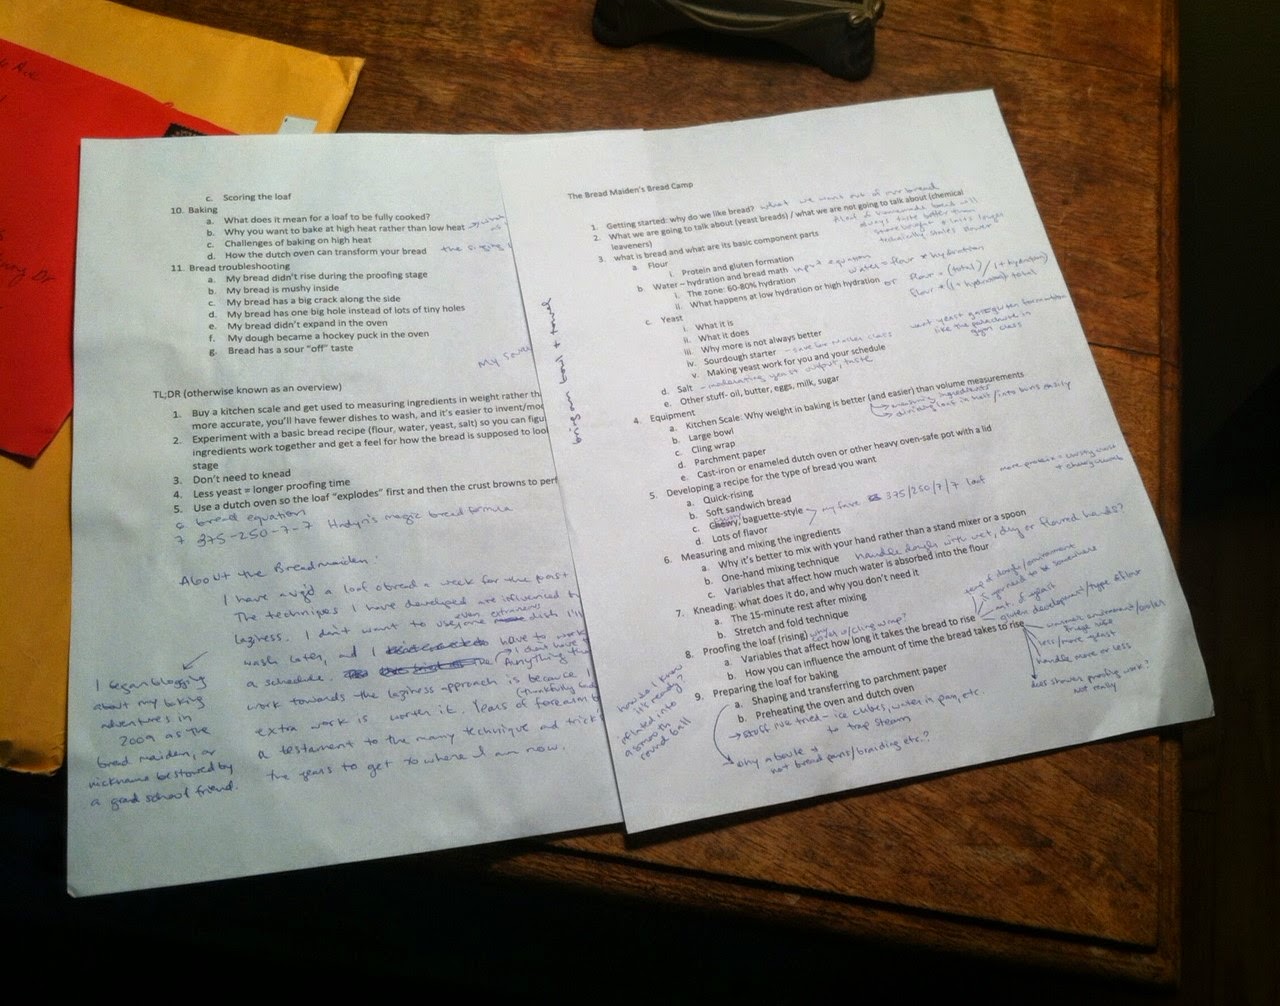 The Bread Maiden's Bread Camp
1. Getting started: why do we like bread? what we want out of our bread
2. What we are going to talk about (yeast breads) / what we are not going to talk about (chemical
leaveners)
A loaf of homemade bread will
always taste better than
store bought & lasts longer
technically stales slower
3. what is bread and what are its basic component parts
a. Flour
i. Protein and gluten formation
b. Water – hydration and bread math input equation
water = flour * hydration
i. The zone: 60-80% hydration
ii. What happens at low hydration or high hydration or flour = (total) / (1 + hydration)
flour * (1 + hydration) = total
c. Yeast
i. What it is
ii. What it does
iii. Why more is not always better
iv. Sourdough starter – save for master class
v. Making yeast work for you and your schedule
want yeast gas + gluten formation
like the parachute in
gym class
d. Salt – moderating yeast output, taste
e. Other stuff- oil, butter, eggs, milk, sugar
4. Equipment
a. Kitchen Scale: Why weight in baking is better (and easier) than volume measurements
→ measuring ingredients
→ dividing loaf in half / into buns easily
b. Large bowl
c. Cling wrap
d. Parchment paper
e. Cast-iron or enameled dutch oven or other heavy oven-safe pot with a lid
bring own bowl + towel
5. Developing a recipe for the type of bread you want
a. Quick-rising
b. Soft sandwich bread
c. Chewy, baguette-style
d. Lots of flavor
my fave 375/250/7/7 loaf
more protein = crusty crust
+ chewy crumb
6. Measuring and mixing the ingredients
a. Why it's better to mix with your hand rather than a stand mixer or a spoon
b. One-hand mixing technique handle dough with wet, dry or floured hands?
c. Variables that affect how much water is absorbed into the flour
7. Kneading: what does it do, and why you don't need it
a. The 15-minute rest after mixing
b. Stretch and fold technique
8. Proofing the loaf (rising) why cover w/ cling wrap?
a. Variables that affect how long it takes the bread to rise
temp of dough/environment
amt. of yeast
gluten development/type of flour
b. How you can influence the amount of time the bread takes to rise
warmer environment/cooler
less/more yeast
handle more or less
does slower proofing work?
not really
how do I know
it's ready?
inflated into
a smooth
round ball
9. Preparing the loaf for baking
a. Shaping and transferring to parchment paper
b. Preheating the oven and dutch oven
→ stuff I've tried – ice cubes, water in pan, etc.
to trap steam
why a boule +
not bread pans/braiding etc.?
c. Scoring the loaf
10. Baking
a. What does it mean for a loaf to be fully cooked?
b. Why you want to bake at high heat rather than low heat
c. Challenges of baking on high heat
d. How the dutch oven can transform your bread
11. Bread troubleshooting
a. My bread didn't rise during the proofing stage
b. My bread is mushy inside
c. My bread has a big crack along the side
d. My bread has one big hole instead of lots of tiny holes
e. My bread didn't expand in the oven
f. My dough became a hockey puck in the oven
g. Bread has a sour "off" taste
TL;DR (otherwise known as an overview)
1. Buy a kitchen scale and get used to measuring ingredients in weight rather
more accurate, you'll have fewer dishes to wash, and it's easier to invent/
2. Experiment with a basic bread recipe (flour, water, yeast, salt) so you can
ingredients work together and get a feel for how the bread is supposed to
stage
3. Don't need to knead
4. Less yeast = longer proofing time
5. Use a dutch oven so the loaf "explodes" first and then the crust browns to
6 bread equation
7 375-250-7-7 magic bread formula
About the Bread maiden:
I have a loaf of bread a week for the past
The techniques I have developed are influenced
laziness. I don't want to use even one extraneous dish I'll
wash later, and I have to work
a schedule. I don't have
Anything
work towards the laziness approach is because
extra work is worth it. Years of
(thankfully
a testament to the many technique and
the years to get to where I am now.
I began blogging
about my baking
adventures in
2009 as the
bread maiden, a
nickname bestowed by
a grad school friend.